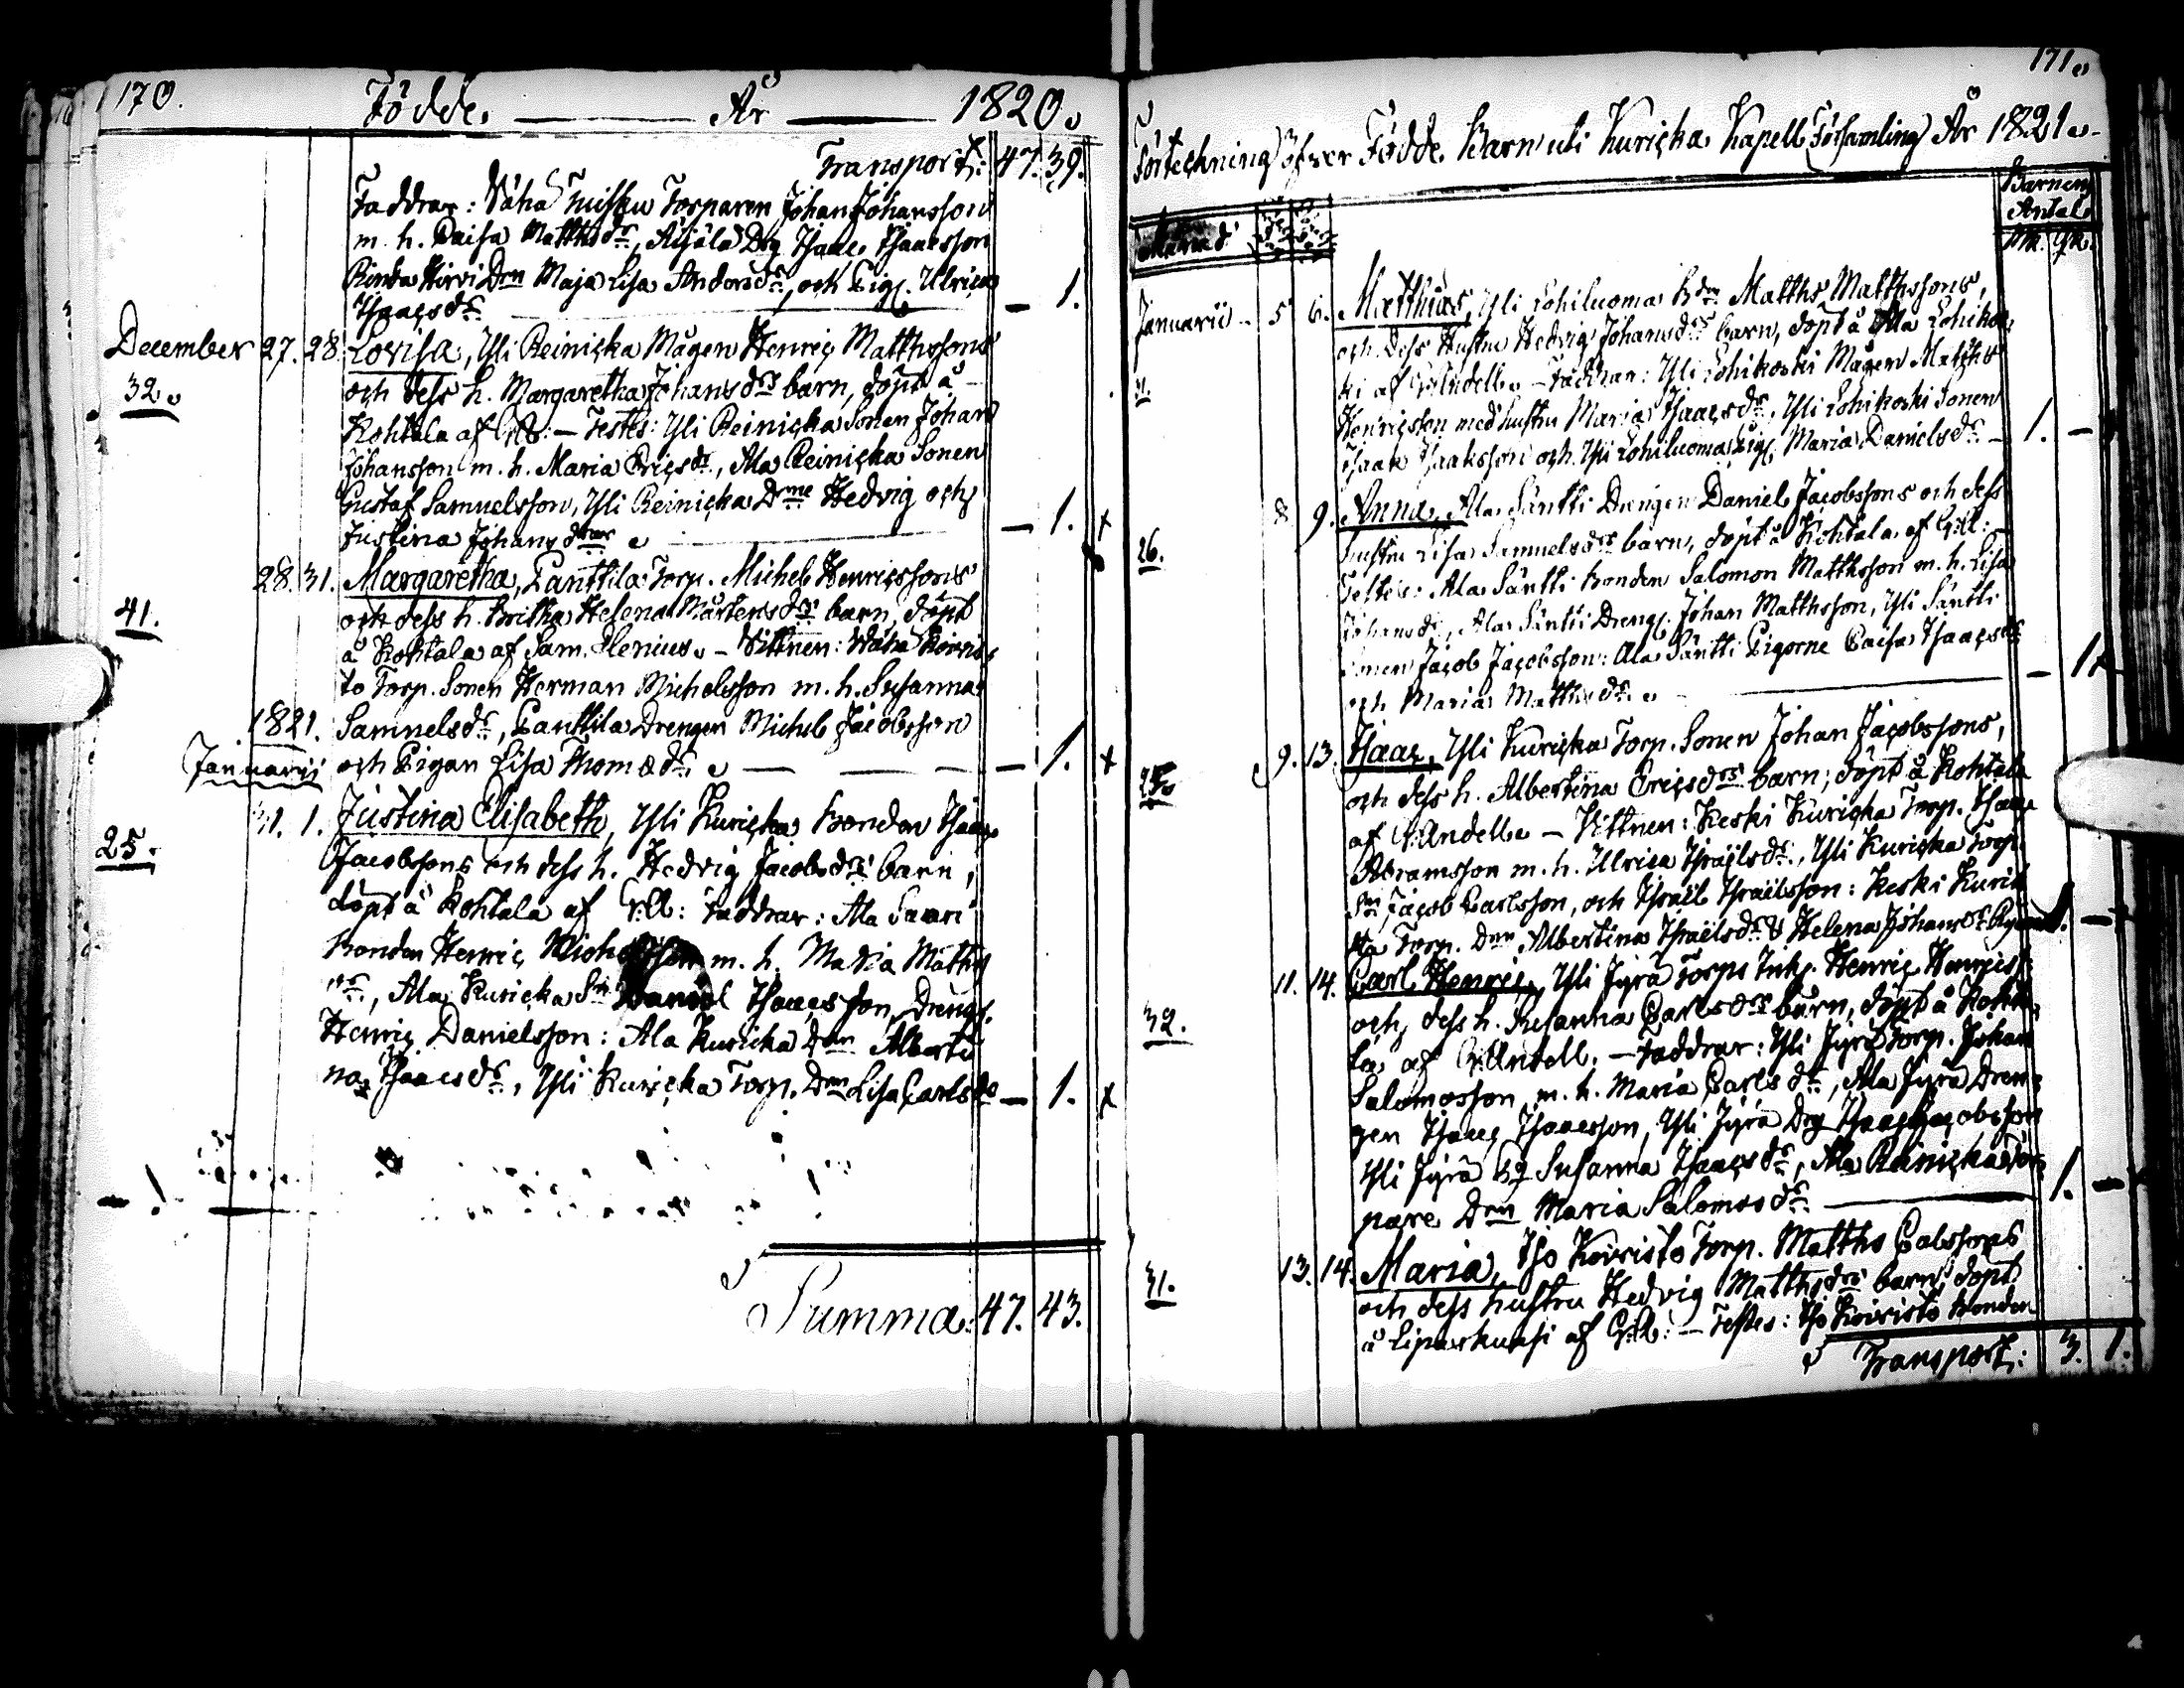 170. Födde. År 1820.
Transport: 47. 39.
Faddrar: Väha Tuisku Torparen Johan Johansson
m. h. Caisa Matths dr, Äijälä Drg Isaac Isaacsson
Rinta Hirvi Drn Maja Lisa Anders dr, och Pig. Ulrica
Isaacs dr — 1.
December 27. 28. Lovisa, Yli Reinicka Mågen Henric Matthssons
32. och dess h. Margaretha Johans drs barn, döpt å
Kohtala af G:A: – Testes: Yli Reinicka Sonen Johan
Johansson m. h. Maria Erics dr, Ala Reinicka Sonen
Gustaf Samuelsson, Yli Reinicka Drne Hedvig och
Justina Johans drar — 1. x
28. 31. Margaretha, Panttila Torp. Michel Henricssons
41. och dess h. Britha Helena Mårtens drs barn, döpt
å Kohtala af Sam. – Vittnen: Wäha Koivis
to Torp. Sonen Herman Michelsson m. h. Susanna
1821. Samuels dr, Panttila Drengen Michel Jacobsson
Januarii och Pigan Lisa Thomæ dr. — 1. x
31. 1. Justina Elisabeth, Yli Kuricka Bonden Isaac
25. Jacobssons och dess h. Hedvig Jacobs drs barn,
döpt å Kohtala af G:A: Faddrar: Ala Saari
Bonden Henric m. h. Maria Matths
dr, Ala Kuricka Sn Daniel Isaacsson, Dreng.
Henric Danielsson: Ala Kuricka Drn Alberti
na Isaacs dr, Yli Kuricka Torp. Drn Lisa Carls dr — 1. x
Summa: 47. 43.
171.
Förteckning öfver Födde Barn uti Kuricka Kapell Församling År 1821.
Barnens
Antal
Månad Mk. Qk.
Januarii 5 6. Matthias, Yli Lohiluoma Bdn Matths Matthssons,
och dess Hustru Hedvig Johans drs barn, döpt å Ala Lohikos
ki af G:Andell. – Faddrar: Yli Lohikoski Mågen Matths
Henricsson med hustru Maria Isaacs dr, Yli Lohikoski Sonen
Isaak Isaaksson och Yli Lohiluoma Pig. Maria Daniels dr – 1. –
8 9. Anna, Ala Säntti Drengen Daniel Jacobssons och dess
26. hustru Lisa Samuels drs barn, döpt å Kohtala af G:A: –
Testes: Ala Säntti Bonden Salomon Matthsson m. h. Lisa
Johans dr, Ala Säntti Dreng. Johan Matthsson, Yli Säntti
Sonen Jacob Jacobsson: Ala Säntti Pigorne Caisa Isaacs dr
och Maria Matths dr. — 1.
9. 13. Isaac, Yli Kuricka Torp. Sonen Johan Jacobssons,
och dess h. Albertina Erics drs barn; döpt å Kohtala
af G:Andell. – Vittnen: Keski Kuricka Torp. Isaac
Abramsson m. h. Ulrica Israels dr, Yli Kuricka Torp.
Sn Jacob Carlsson, och Israël Israëlsson: Keski Kuric
ka Torp. Drn Albertina Israëls dr & Helena Johans dr 1. –
11. 14. Carl Henric, Yli Jyrä Torps Inh. Henric Henrics
32. och dess h. Susanna Carls drs barn, döpt å Kohta
la af G:Andell. – Faddrar: Yli Jyrä Torp. Johan
Salomosson m. h. Maria Carls dr, Ala Jyrä Dren
gen Isaac Isaacsson, Yli Jyrä Drg Isaac Jacobsson
Yli Jyrä Susanna Isaacs dr, Ala Reinicka Tor
pare Drn Maria Salomos dr. 1. –
13. 14. Maria, Iso Koivisto Torp. Matths
31. och dess hustru Hedvig Matths drs barn, döpt
å af G:A: – Testes: Iso Koivisto Bonden
Transport: 3. 1.